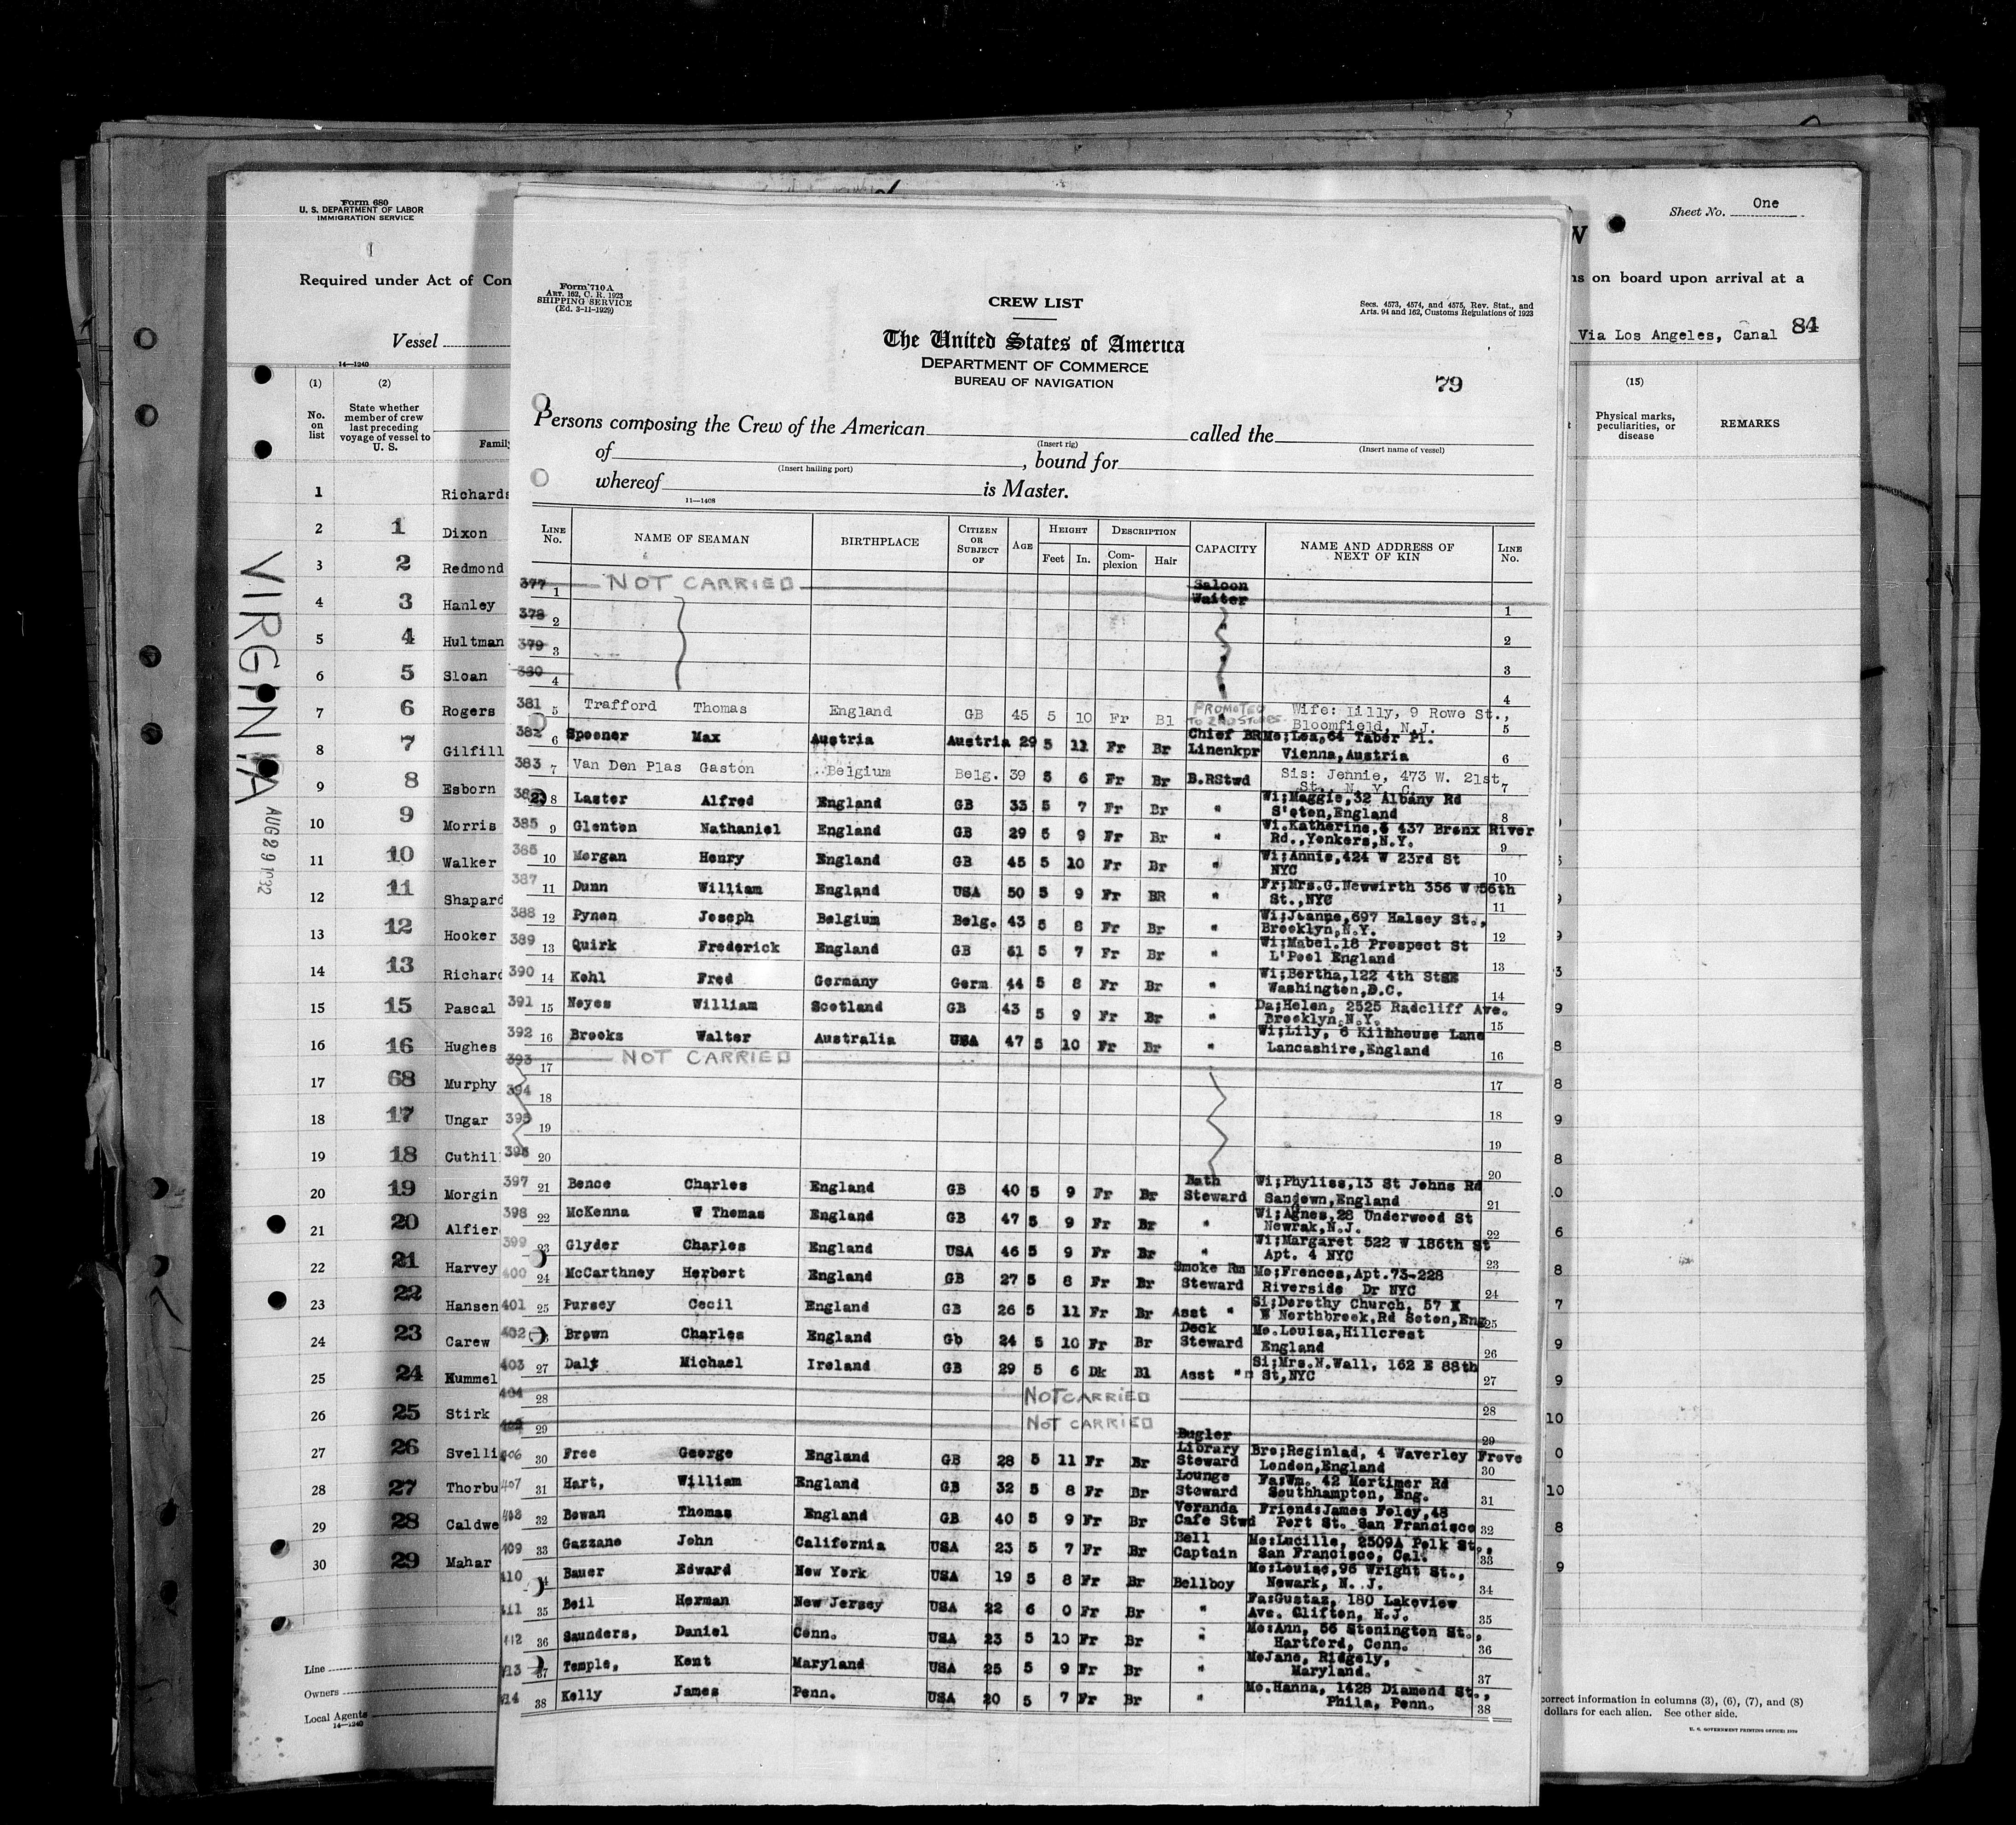 Form 680
U. S. DEPARTMENT OF LABOR
IMMIGRATION SERVICE
Required under Act of Con
Vessel
14—1240
(1) (2)
No. on list
State whether member of crew last preceding voyage of vessel to U. S.
Family
1 Richards
2 1 Dixon
3 2 Redmond
4 3 Hanley
5 4 Hultman
6 5 Sloan
7 6 Rogers
8 7 Gilfill
9 8 Esborn
10 9 Morris
11 10 Walker
12 11 Shapard
13 12 Hooker
14 13 Richard
15 15 Pascal
16 16 Hughes
17 68 Murphy
18 17 Ungar
19 18 Cuthil
20 19 Morgin
21 20 Alfier
22 21 Harvey
23 22 Hansen
24 23 Carew
25 24 Kummel
26 25 Stirk
27 26 Svelli
28 27 Thorbu
29 28 Caldwe
30 29 Mahar
Line
Owners
Local Agents
14—1240
VIRGINIA
AUG 29 1932
Form 710 A
ART. 162, C. R. 1923
SHIPPING SERVICE
(Ed. 3-11-1929)
CREW LIST
Secs. 4573, 4574, and 4575, Rev. Stat., and
Arts. 94 and 162, Customs Regulations of 1923
The United States of America
DEPARTMENT OF COMMERCE
BUREAU OF NAVIGATION
79
Persons composing the Crew of the American called the
(Insert rig) (Insert name of vessel)
of , bound for
(Insert hailing port)
whereof is Master.
11—1408
LINE No. NAME OF SEAMAN BIRTHPLACE CITIZEN OR SUBJECT OF AGE HEIGHT Feet In. DESCRIPTION Complexion Hair CAPACITY NAME AND ADDRESS OF NEXT OF KIN LINE No.
377 1 NOT CARRIED Saloon Waiter 1
378 2 " 2
379 3 " 3
380 4 " 4
381 5 Trafford Thomas England GB 45 5 10 Fr Bl PROMOTED TO 2ND STORES. " Wife: Lilly, 9 Rowe St., Bloomfield, N.J. 5
382 6 Spooner Max Austria Austria 29 5 11 Fr Br Chief BR Linenkpr Mo;Lea,64 Taber Pl. Vienna,Austria 6
383 7 Van Den Plas Gaston Belgium Belg. 39 5 6 Fr Br B.RStwd Sis: Jennie, 473 W. 21st St., N. Y. C. 7
8 Laster Alfred England GB 33 5 7 Fr Br " Wi;Maggie,32 Albany Rd S'oton,England 8
385 9 Glenton Nathaniel England GB 29 5 9 Fr Br " Wi.Katherine, 437 Bronx River Rd.,Yonkers,N.Y. 9
385 10 Morgan Henry England GB 45 5 10 Fr Br " Wi;Annie,424 W 23rd St NYC 10
387 11 Dunn William England USA 50 5 9 Fr BR " Fr;Mrs.G.Newwirth 356 W 56th St.,NYC 11
388 12 Pynen Joseph Belgium Belg. 43 5 8 Fr Br " Wi;Jeanne,697 Halsey St., Brooklyn,N.Y. 12
389 13 Quirk Frederick England GB 61 5 7 Fr Br " Wi;Mabel.18 Prospect St L'Pool England 13
390 14 Kohl Fred Germany Germ 44 5 8 Fr Br " Wi;Bertha,122 4th StSE Washington,D.C. 14
391 15 Noyes William Scotland GB 43 5 9 Fr Br " Da;Helen, 2525 Radcliff Ave. Brooklyn,N.Y. 15
392 16 Brooks Walter Australia USA 47 5 10 Fr Br " Wi;Lily, 6 Kilnhouse Lane Lancashire,England 16
393 17 NOT CARRIED 17
394 18 18
395 19 19
396 20 20
397 21 Bence Charles England GB 40 5 9 Fr Br Bath Steward Wi;Phyliss,13 St Johns Rd Sandown,England 21
398 22 McKenna W Thomas England GB 47 5 9 Fr Br " Wi;Agnes,28 Underwood St Newrak,N.J. 22
399 23 Glyder Charles England USA 46 5 9 Fr Br " Wi;Margaret 522 W 186th St Apt. 4 NYC 23
400 24 McCarthney Herbert England GB 27 5 8 Fr Br Smoke Rm Steward Mo;Frences,Apt.73-228 Riverside Dr NYC 24
401 25 Pursey Cecil England GB 26 5 11 Fr Br Asst " Si;Dorothy Church, 57 Northbrook,Rd Soton,Eng 25
402 Brown Charles England Gb 24 5 10 Fr Br Deck Steward Mo.Louisa,Hillcrest England 26
403 27 Daly Michael Ireland GB 29 5 6 Dk Bl Asst "" Si;Mrs.N.Wall, 162 E 88th St,NYC 27
404 28 NOT CARRIED 28
405 29 NOT CARRIED Bugler 29
406 30 Free George England GB 28 5 11 Fr Br Library Steward Bro;Reginlad, 4 Waverley Frove London,England 30
407 31 Hart, William England GB 32 5 8 Fr Br Lounge Steward Fa:Wm. 42 Mortimer Rd Southhampton, Eng. 31
408 32 Bowan Thomas England GB 40 5 9 Fr Br Veranda Cafe Stwd Friend:James Foley,48 Port St. San Francisco 32
409 33 Gazzano John California USA 23 5 7 Fr Br Bell Captain Mo:Lucille, 2509A Polk St., San Francisco, Cal. 33
410 Bauer Edward New York USA 19 5 8 Fr Br Bellboy Mo:Louise,96 Wright St., Newark, N. J. 34
411 35 Beil Herman New Jersey USA 22 6 0 Fr Br " Fa:Gustaz, 180 Lakeview Ave. Clifton, N.J. 35
412 36 Saunders, Daniel Conn. USA 23 5 10 Fr Br " Mo:Ann, 56 Stonington St., Hartford, Conn. 36
413 37 Temple, Kent Maryland USA 25 5 9 Fr Br " MoJane, Ridgely, Maryland. 37
414 38 Kelly James Penn. USA 20 5 7 Fr Br " Mo.Hanna, 1428 Diamond St., Phila, Penn. 38
Sheet No. One
W
ns on board upon arrival at a
Via Los Angeles, Canal 84
(15)
Physical marks, peculiarities, or disease
REMARKS
correct information in columns (3), (6), (7), and (8)
dollars for each alien. See other side.
U. S. GOVERNMENT PRINTING OFFICE: 1930